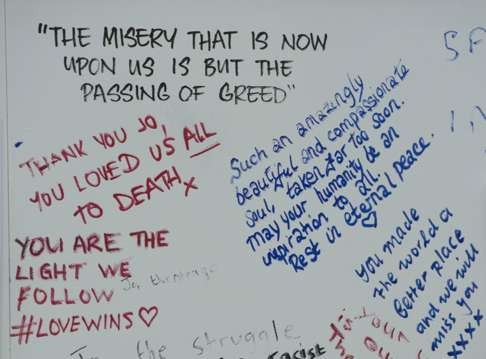 "THE MISERY THAT IS NOW
UPON US IS BUT THE
PASSING OF GREED"
THANK YOU JO,
YOU LOVED US ALL
TO DEATH X
Such an amazingly
beautiful and compassionate
soul, taken far too soon.
may your humanity be an
inspiration to all.
Rest in eternal peace.
♡
YOU ARE THE
LIGHT WE
FOLLOW
#LOVEWINS♡
you made
the world a
Better Place
and we will
miss you
xxxx
the struggle